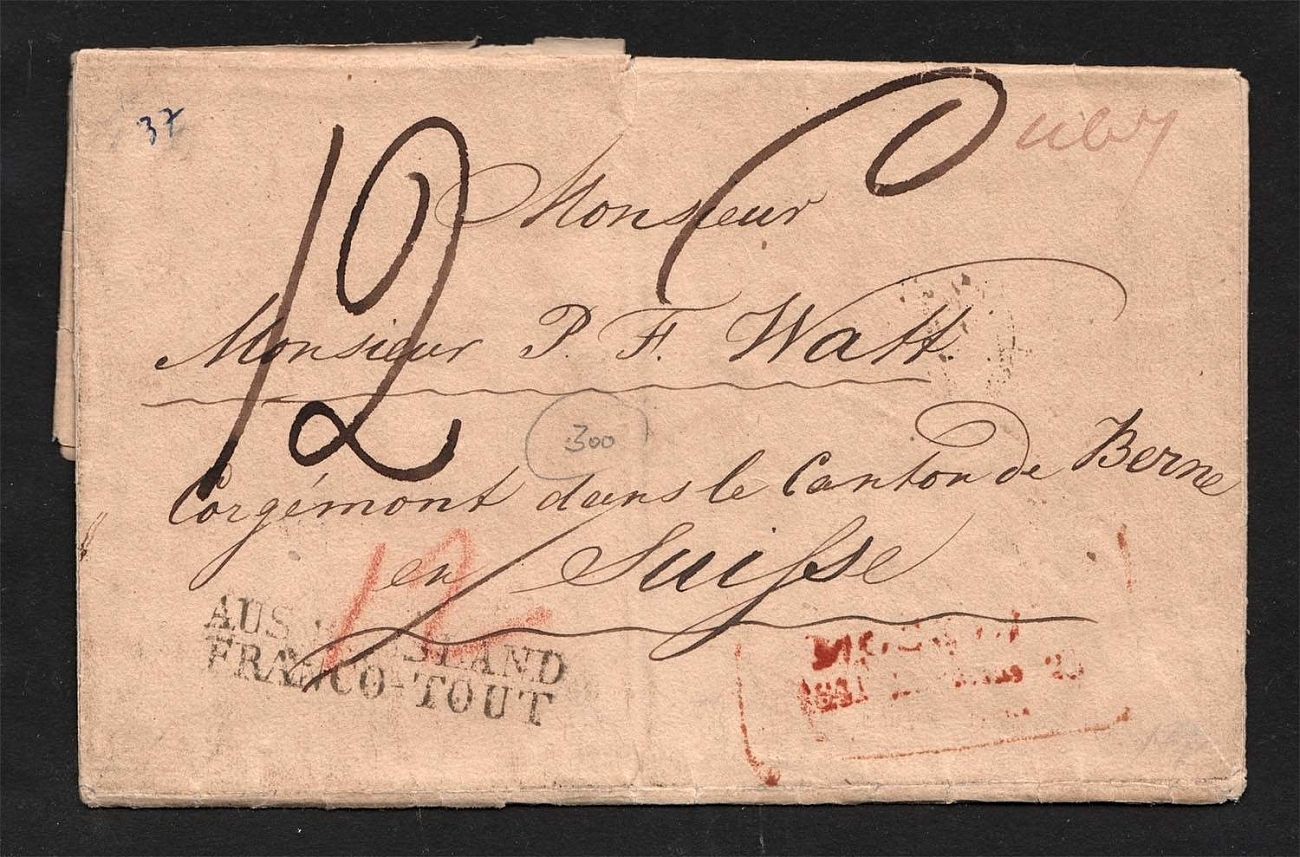 37
12
Monsieur
Monsieur P. F. Watt.
300
Corgémont dans le Canton de Berne
en Suisse
12
AUS LAND
FRANCO-TOUT